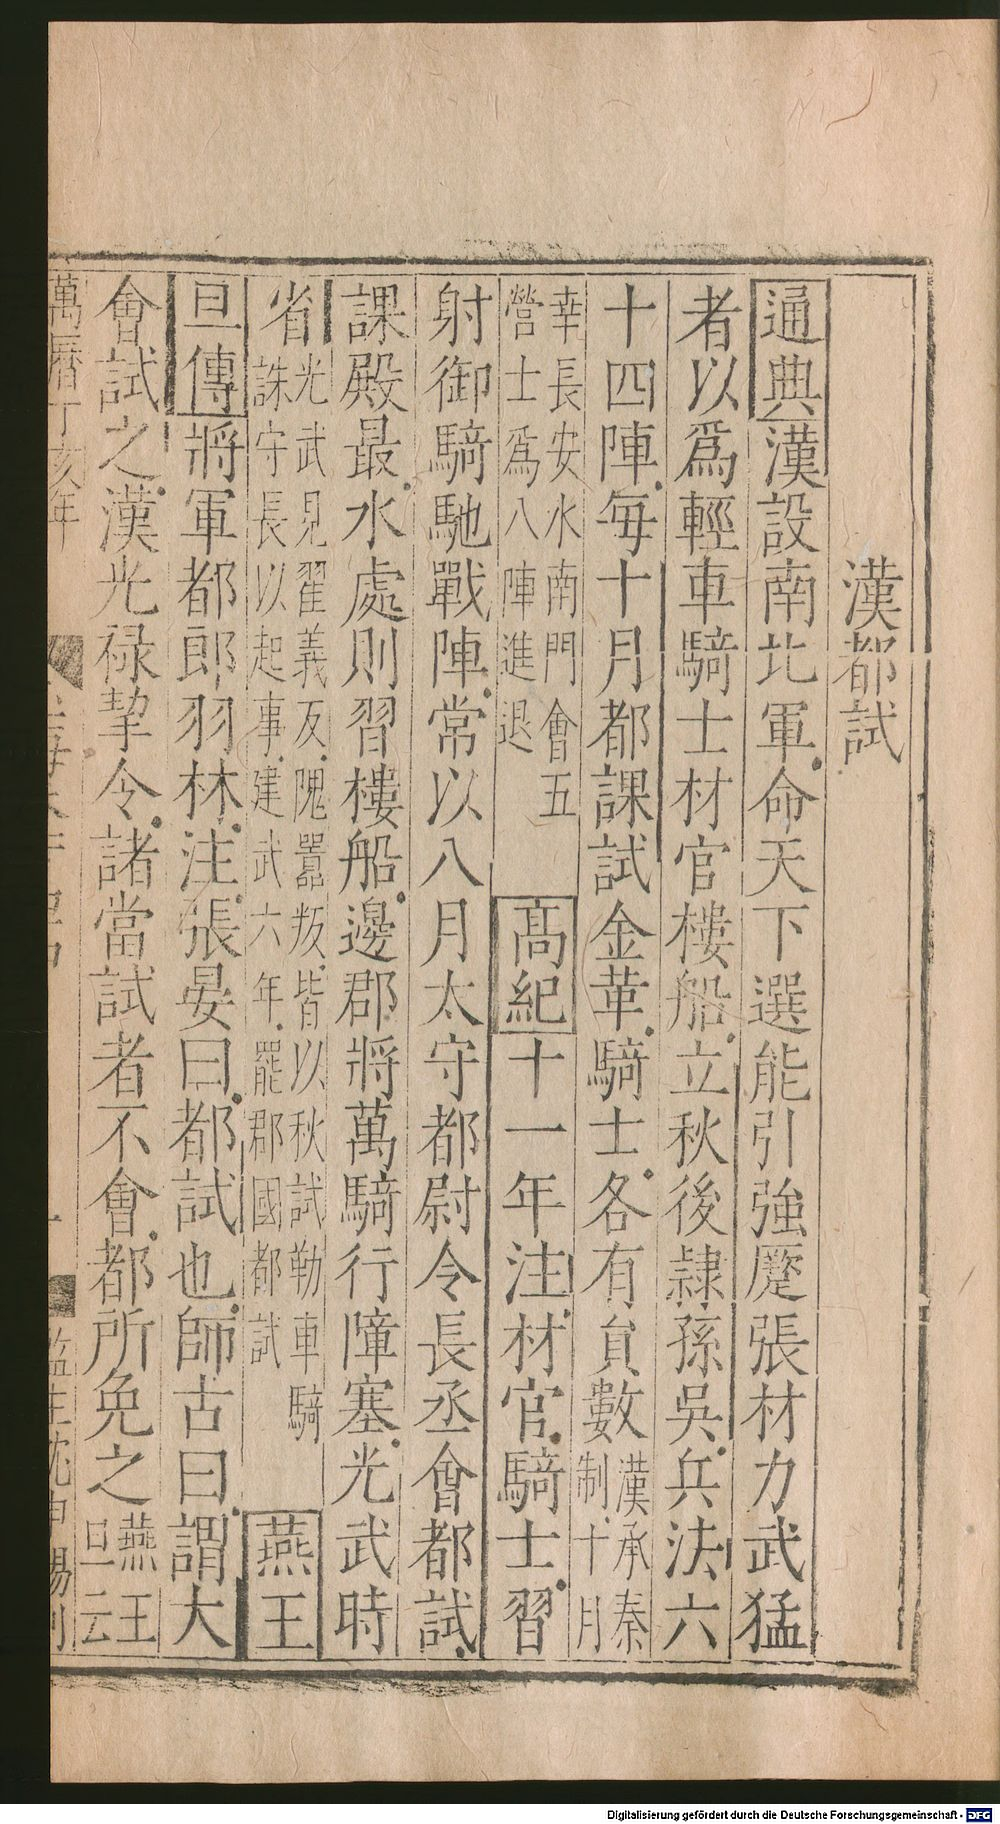 漢都試
通典漢設南北軍命天下選能引強蹷張材力武猛
者以爲輕車騎士材官樓船立秋後隷孫吳兵法六
十四陣每十月都課試金革騎士各有員數漢承秦
制十月
幸長安水南門會五
營士爲八陣進退
高紀十一年注材官騎士習
射御騎馳戰陣常以八月太守都尉令長丞會都試
課殿最水處則習樓船邊郡將萬騎行障塞光武時
省光武見翟義友隗囂叛皆以秋試勒車騎
誅守長以起事建武六年罷郡國都試
燕王
旦傳將軍都郎羽林注張晏曰都試也師古曰謂大
會試之漢光禄挈令諸當試者不會都所免之燕王
旦云
萬曆丁亥年
監生沈申錫刊
Digitalisierung gefördert durch die Deutsche Forschungsgemeinschaft - DFG